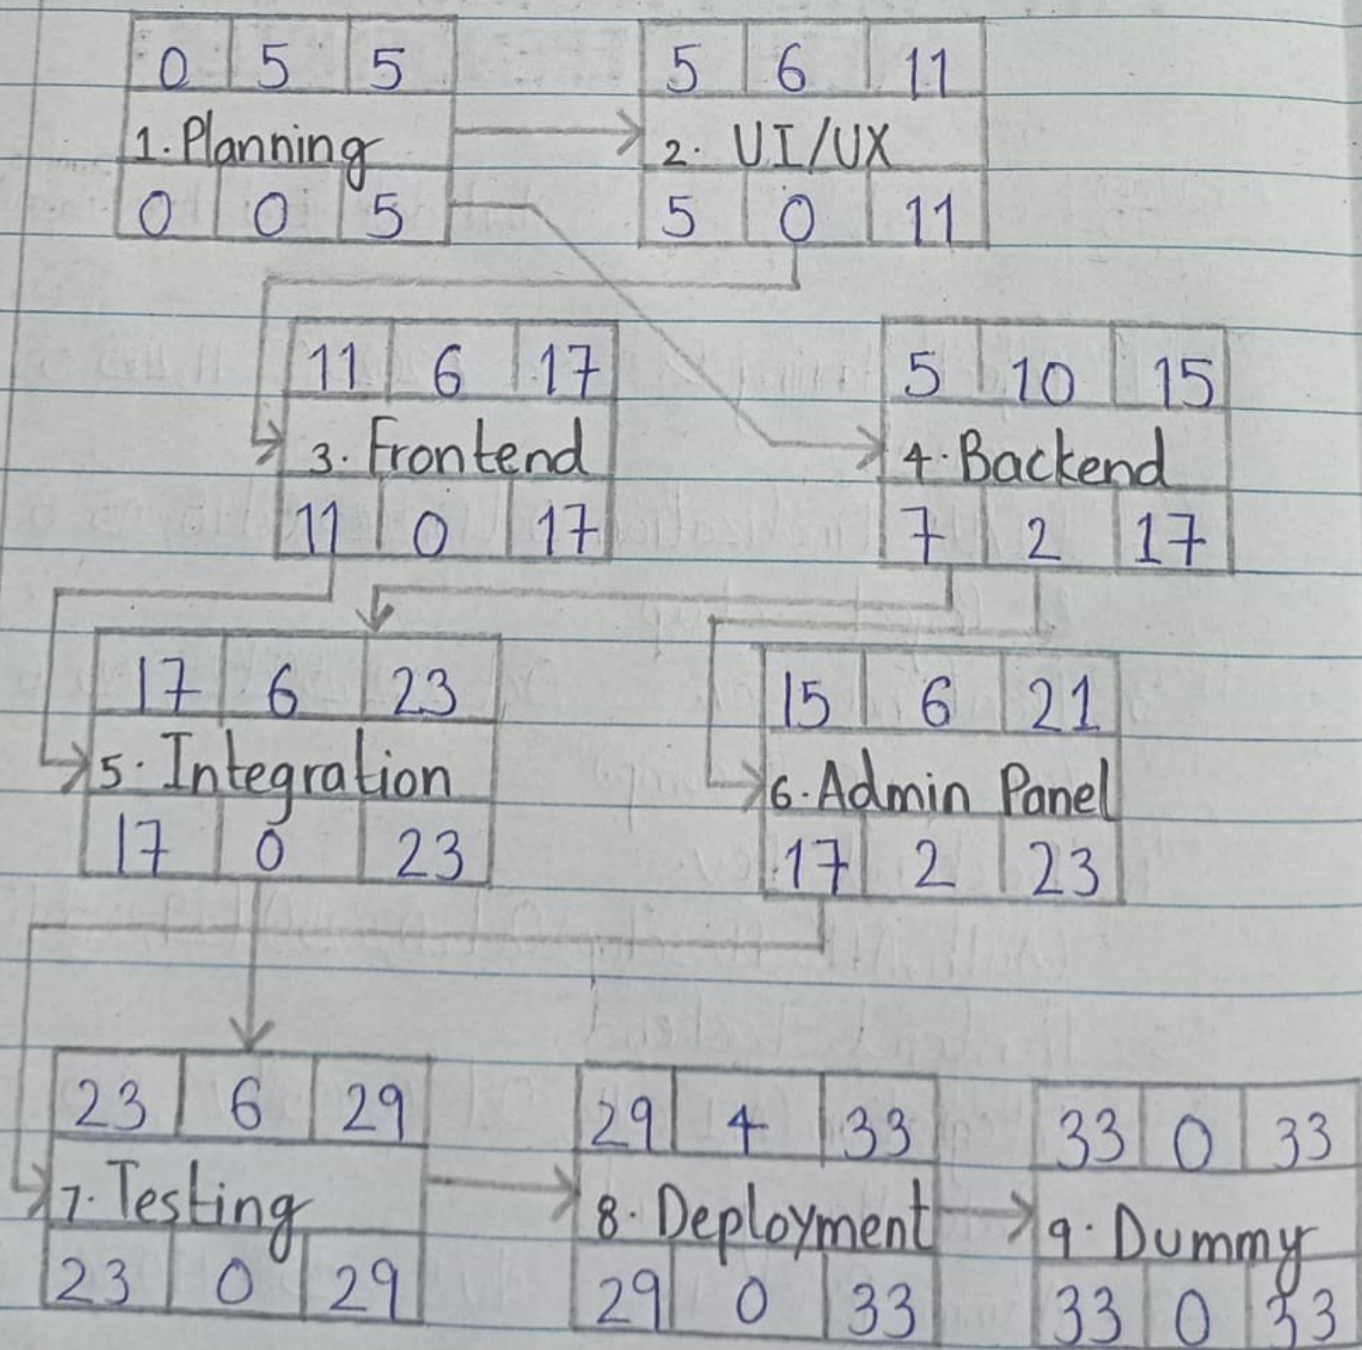 0 5 5
1. Planning
0 0 5
5 6 11
2. UI/UX
5 0 11
11 6 17
3. Frontend
11 0 17
5 10 15
4. Backend
7 2 17
17 6 23
5. Integration
17 0 23
15 6 21
6. Admin Panel
17 2 23
23 6 29
7. Testing
23 0 29
29 4 33
8. Deployment
29 0 33
33 0 33
9. Dummy
33 0 33